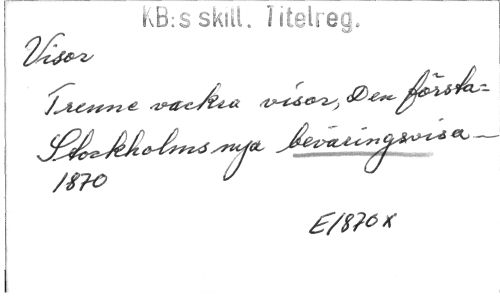 KB:s skill. Titelreg.
Visor
Trenne vackra visor, Den första=
Stockholms nya beväringsvisa_
1870
E1870x